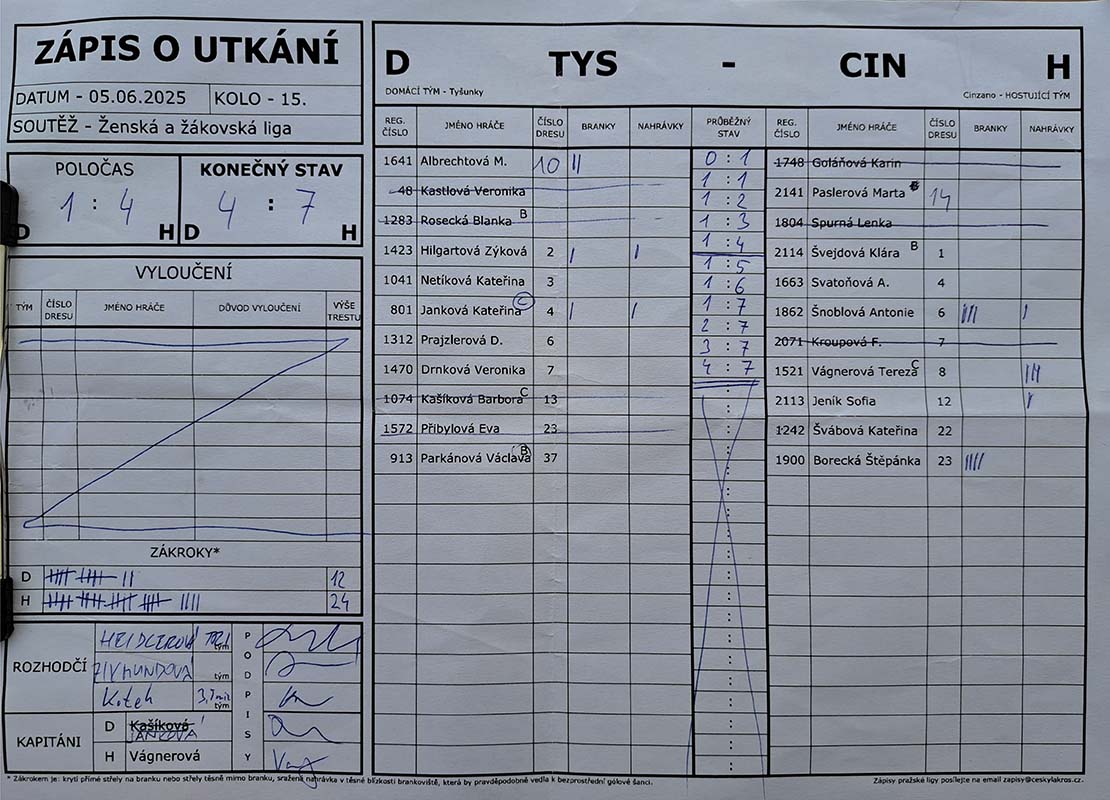 ZÁPIS O UTKÁNÍ
DATUM - 05.06.2025 KOLO - 15.
SOUTĚŽ - Ženská a žákovská liga
POLOČAS KONEČNÝ STAV
1 : 4 4 : 7
D H D H
VYLOUČENÍ
TÝM ČÍSLO DRESU JMÉNO HRÁČE DŮVOD VYLOUČENÍ VÝŠE TRESTU
ZÁKROKY*
D 12
H 24
ROZHODČÍ
HEIDLEROVÁ tým
ZIKMUNDOVÁ tým
Koteh tým
PODPISY
KAPITÁNI
D Kašíková JANKOVÁ
H Vágnerová
D TYS - CIN H
DOMÁCÍ TÝM - Tyšunky Cinzano - HOSTUJÍCÍ TÝM
REG. ČÍSLO JMÉNO HRÁČE ČÍSLO DRESU BRANKY NAHRÁVKY PRŮBĚŽNÝ STAV REG. ČÍSLO JMÉNO HRÁČE ČÍSLO DRESU BRANKY NAHRÁVKY
1641 Albrechtová M. 10 ||
48 Kastlová Veronika
1283 Rosecká Blanka B
1423 Hilgartová Zýková 2 | |
1041 Netíková Kateřina 3
801 Janková Kateřina C 4 | |
1312 Prajzlerová D. 6
1470 Drnková Veronika 7
1074 Kašíková Barbora C 13
1572 Přibylová Eva 23
913 Parkánová Václava B 37
0 : 1
1 : 1
1 : 2
1 : 3
1 : 4
1 : 5
1 : 6
1 : 7
2 : 7
3 : 7
4 : 7
1748 Goláňová Karin
2141 Paslerová Marta 14
1804 Spurná Lenka
2114 Švejdová Klára B 1
1663 Svatoňová A. 4
1862 Šnoblová Antonie 6 ||| |
2071 Kroupová F. 7
1521 Vágnerová Tereza C 8 |||
2113 Jeník Sofia 12 |
1242 Švábová Kateřina 22
1900 Borecká Štěpánka 23 ||||
* Zákrokem je: krytí přímé střely na branku nebo střely těsně mimo branku, sražená nahrávka v těsné blízkosti brankoviště, která by pravděpodobně vedla k bezprostřední gólové šanci.
Zápisy pražské ligy posílejte na email zapisy@ceskylakros.cz.